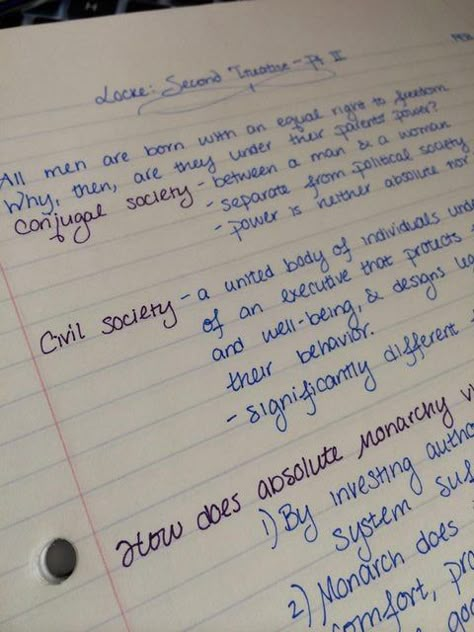 Locke: Second Treatise - Pt II
All men are born with an equal right to freedom
Why, then, are they under their parents' power?
Conjugal society - between a man & a woman
- separate from political society
- power is neither absolute nor
Civil society - a united body of individuals under
of an executive that protects
and well-being, & designs
their behavior.
- significantly different
How does absolute monarchy
1) By investing
system
2) Monarch does
comfort,